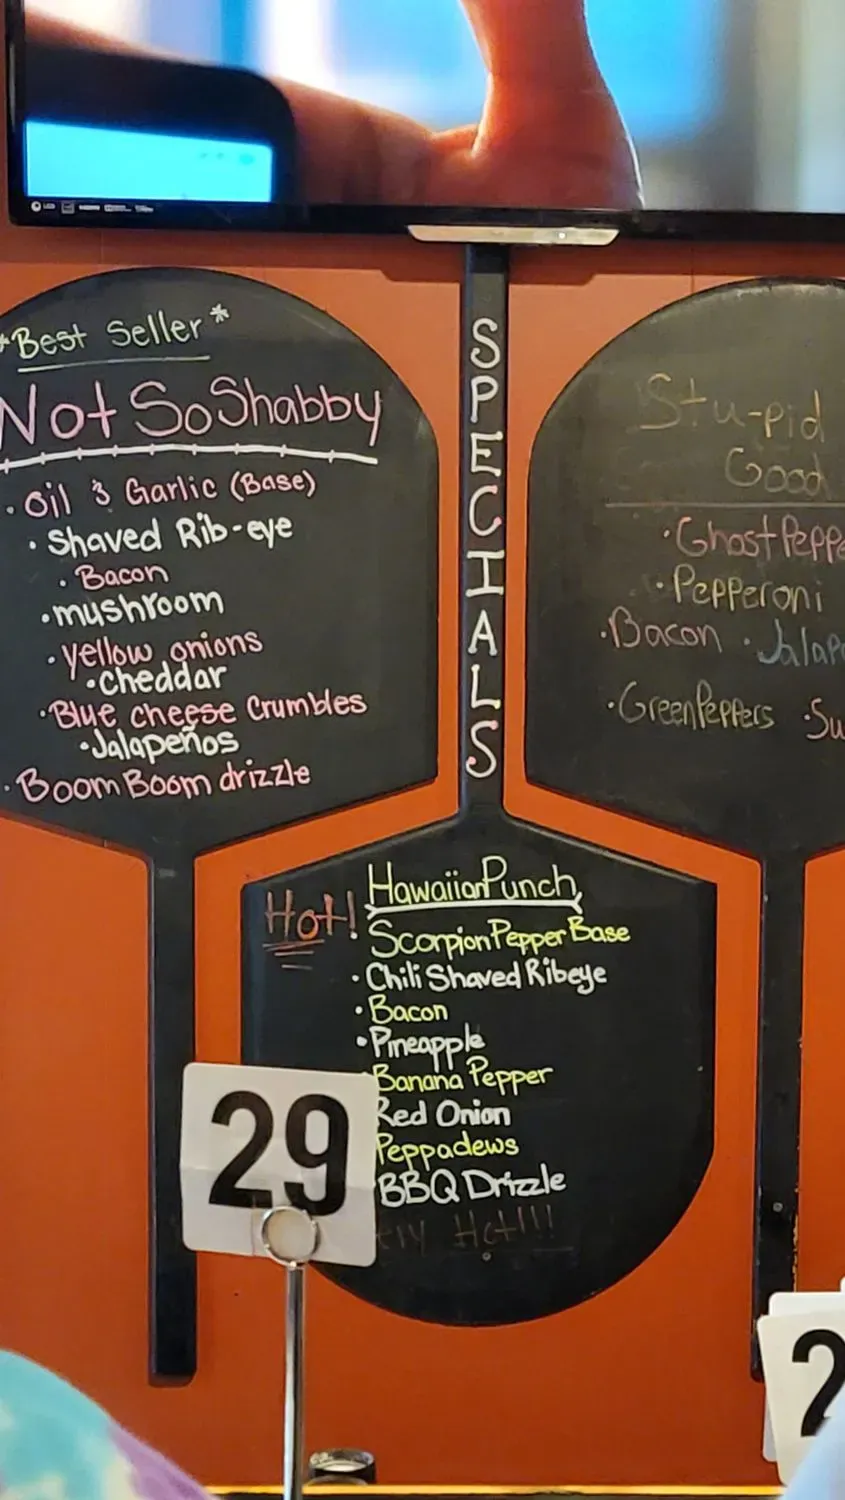 *Best Seller*
Not So Shabby
· Oil & Garlic (Base)
· Shaved Rib-eye
· Bacon
· mushroom
· yellow onions
· cheddar
· Blue cheese Crumbles
· Jalapeños
· Boom Boom drizzle
SPECIALS
Stu-pid
Good
· Ghost Peppe
· Pepperoni
· Bacon · Jalap
· Green Peppers · Su
Hawaiian Punch
Hot!
· Scorpion Pepper Base
· Chili Shaved Ribeye
· Bacon
· Pineapple
Banana Pepper
Red Onion
Peppadews
BBQ Drizzle
ery Hot!!!
29
2